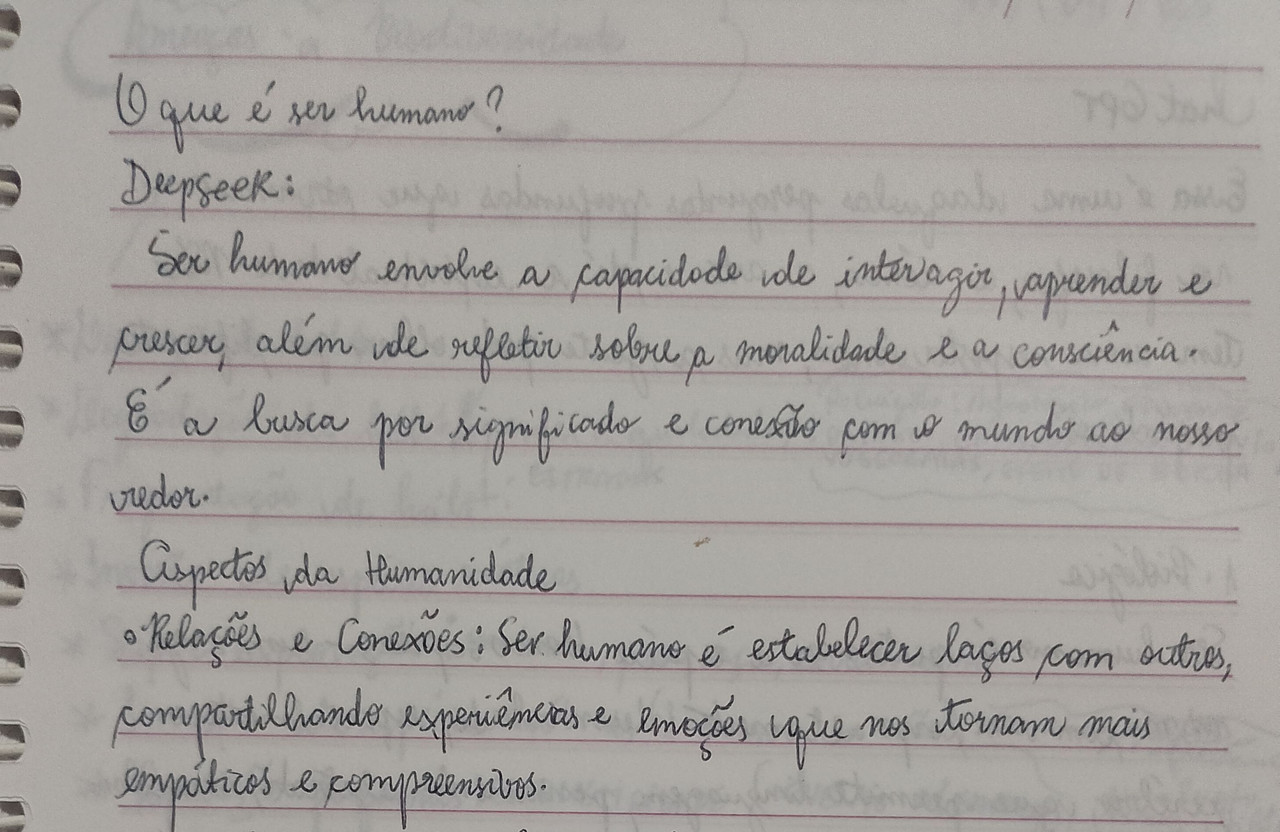 O que é ser humano?
Deepseek:
Ser humano envolve a capacidade de interagir, aprender e
crescer, além de refletir sobre a moralidade e a consciência.
É a busca por significado e conexão com o mundo ao nosso
redor.
Aspectos da Humanidade
• Relações e Conexões: Ser humano é estabelecer laços com outros,
compartilhando experiências e emoções que nos tornam mais
empáticos e compreensivos.